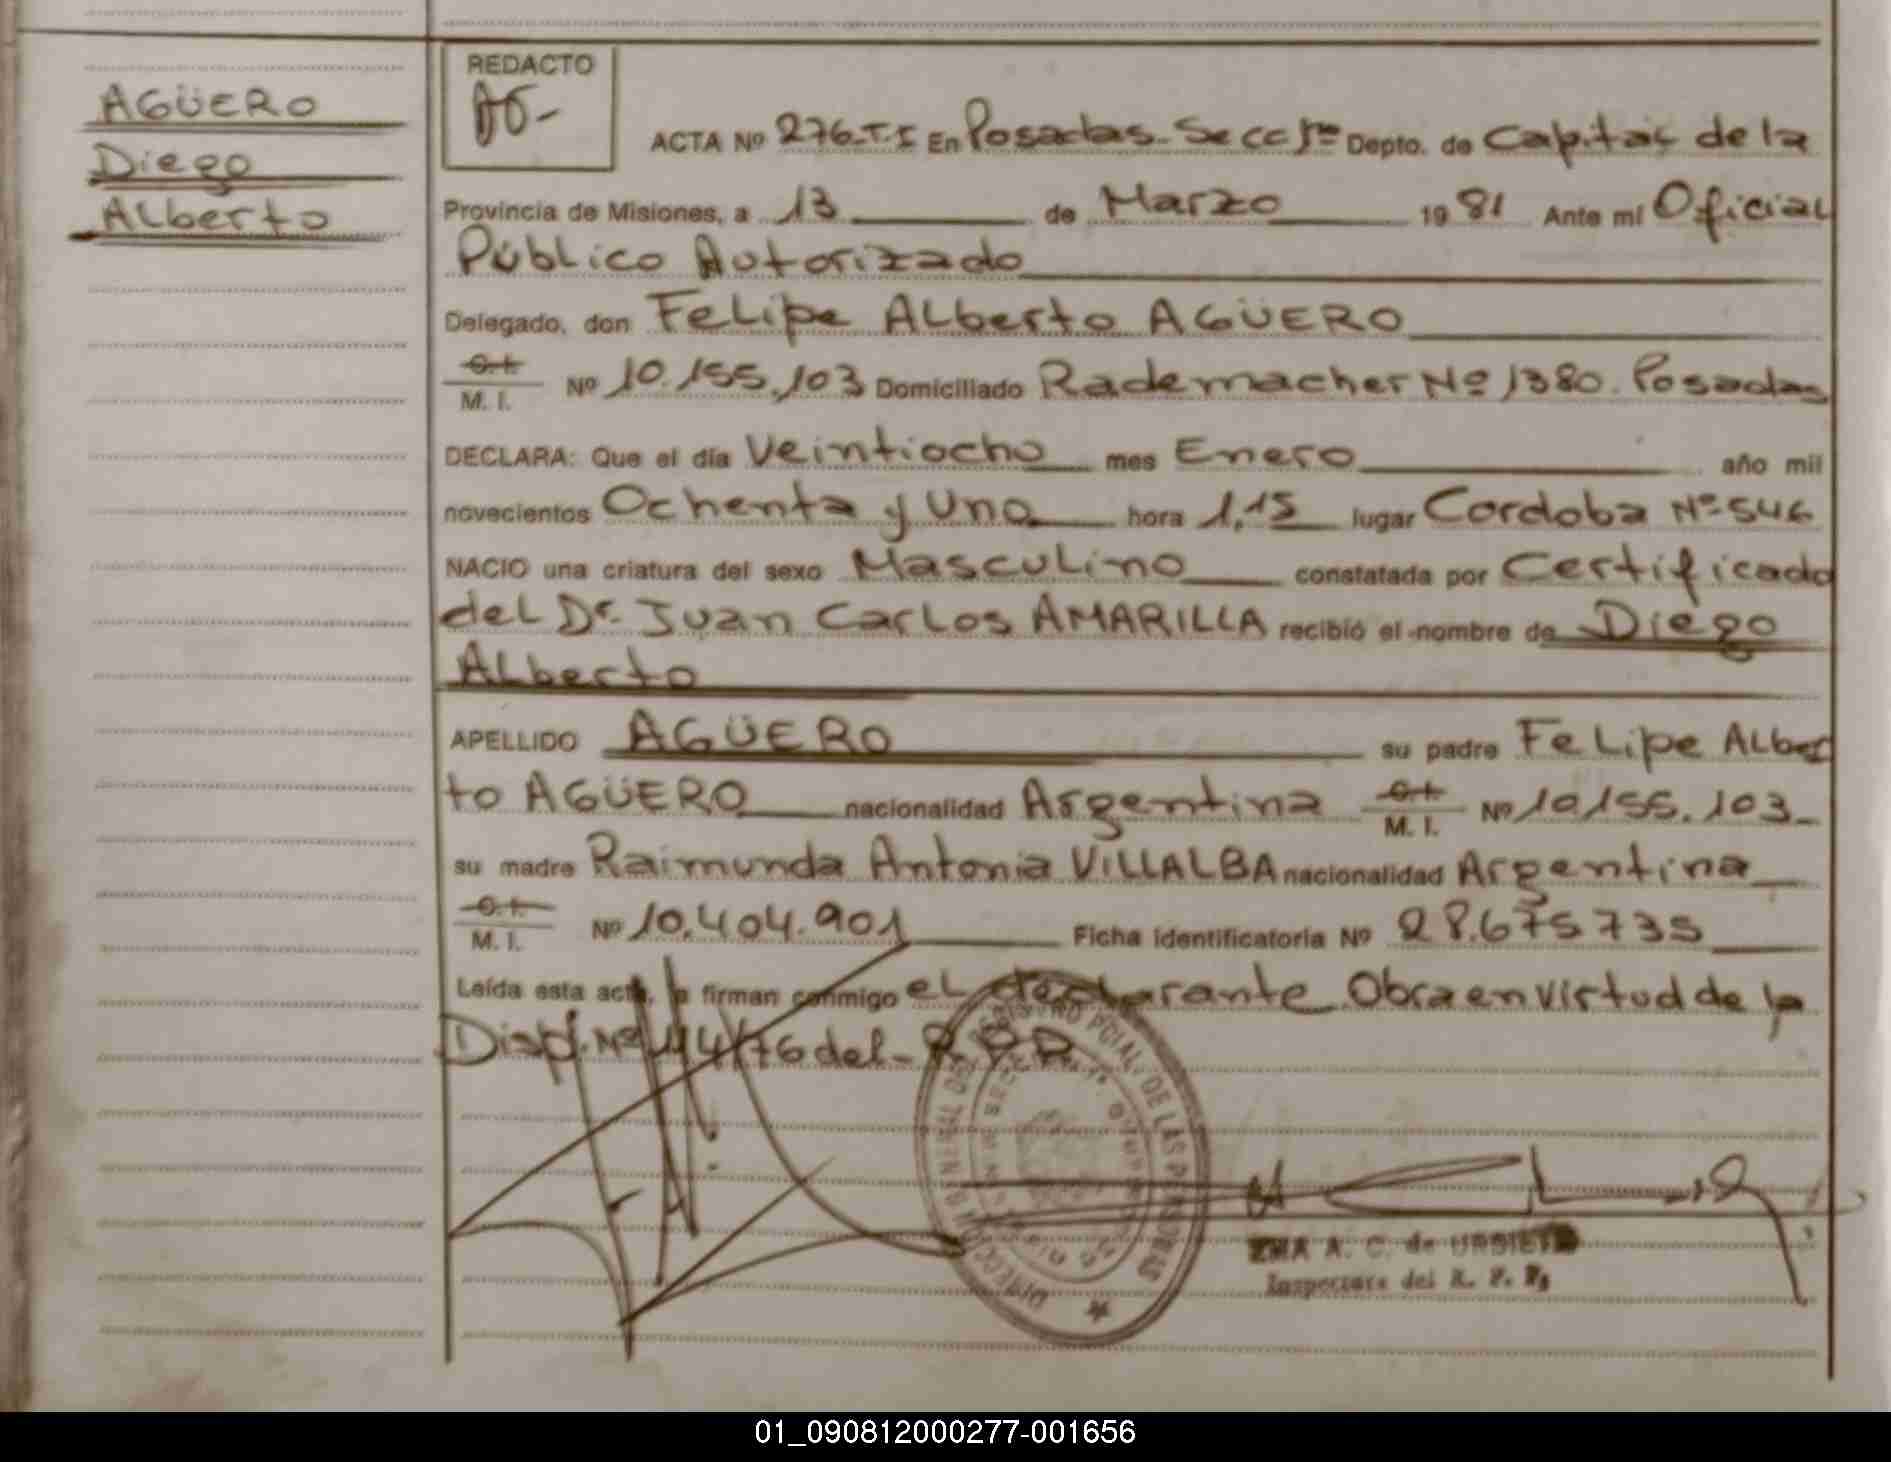 AGÜERO
Diego
Alberto
REDACTO
ACTA Nº 276-T-I En Posadas-Secc 1ra Depto. de Capital de la
Provincia de Misiones, a 13 de Marzo 1981 Ante mí Oficial
Público Autorizado
Delegado, don Felipe Alberto AGÜERO
C.I.
M. I. Nº 10.155.103 Domiciliado Rademacher Nº 1380. Posadas
DECLARA: Que el día Veintiocho mes Enero año mil
novecientos Ochenta y Uno hora 1,15 lugar Cordoba Nº 546
NACIO una criatura del sexo Masculino constatada por Certificado
del Dr. Juan Carlos AMARILLA recibió el nombre de Diego
Alberto
APELLIDO AGÜERO su padre Felipe Alber
to AGÜERO nacionalidad Argentina C.I. M. I. Nº 10.155.103-
su madre Raimunda Antonia VILLALBA nacionalidad Argentina
C.I.
M. I. Nº 10.404.901 Ficha identificatoria Nº 28.675735
Leída esta acta, la firman conmigo el declarante Obra en virtud de la
Disp. Nº 44/76 del-R.P.P.
DIRECCION GENERAL DEL REGISTRO PCIAL. DE LAS PERSONAS
A. C. de URBIETA
Inspectora del R. P. P.
01_090812000277-001656